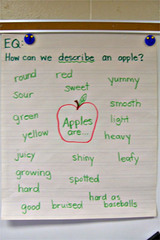 EQ:
How can we describe an apple?
round red yummy
sour sweet
smooth
green Apples light
yellow are... heavy
juicy shiny leafy
growing spotted
hard hard as
good bruised baseballs